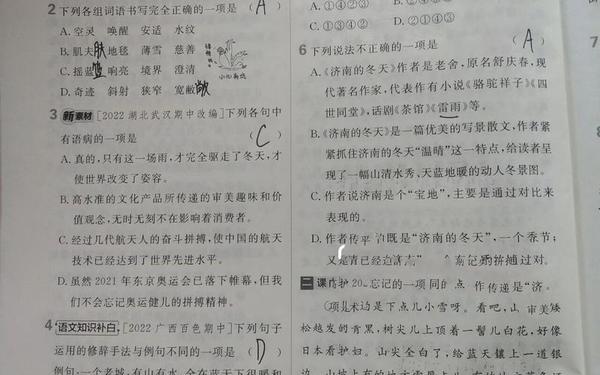 2 下列各组词语书写完全正确的一项是 ( A )
A. 空灵 唤醒 安适 水纹
B. 肌夫 肤 地毯 薄雪 慈善
C. 摇蓝 篮 响亮 境界 澄清
D. 奇迹 斜射 狭窄 宽敝 敞
3 新素材 [2022湖北武汉期中改编] 下列各句中
有语病的一项是 ( C )
A. 真的,只有这一场雨,才完全驱走了冬天,才
使世界改变了姿容。
B. 高水准的文化产品所传递的审美趣味和价
值观念,无时无刻不在影响着消费者。
C. 经过几代航天人的奋斗拼搏,使中国的航天
技术已经达到了世界先进水平。
D. 虽然2021年东京奥运会已落下帷幕,但我
们不会忘记奥运健儿的拼搏精神。
4 语文知识补白 [2022广西百色期中] 下列句子
运用的修辞手法与例句不同的一项是 ( D )
例句:一个老城,有山有水,全在蓝天下很暖和
A. ①④②③ D. ①②④③
C. ①③②④
6 下列说法不正确的一项是 ( A )
A.《济南的冬天》作者是老舍,原名舒庆春,现
代著名作家,代表作有小说《骆驼祥子》《四
世同堂》,话剧《茶馆》《雷雨》等。
B.《济南的冬天》是一篇优美的写景散文,作者紧
紧抓住济南冬天“温晴”这一特点,给读者呈
现了一幅山清水秀、天蓝地暖的动人冬景图。
C. 作者说济南是个“宝地”,主要是通过对比来
表现的。
既是“济南的冬天”,一个季节;
二 课
忘记的一项同的 点 作传递是“济。
边是下点儿小雪呀。看吧,山 审美矮
松越发的青黑,树尖儿上顶着一髻儿白花,好像
日本看护妇。山尖全白了,给蓝天镶上一道银